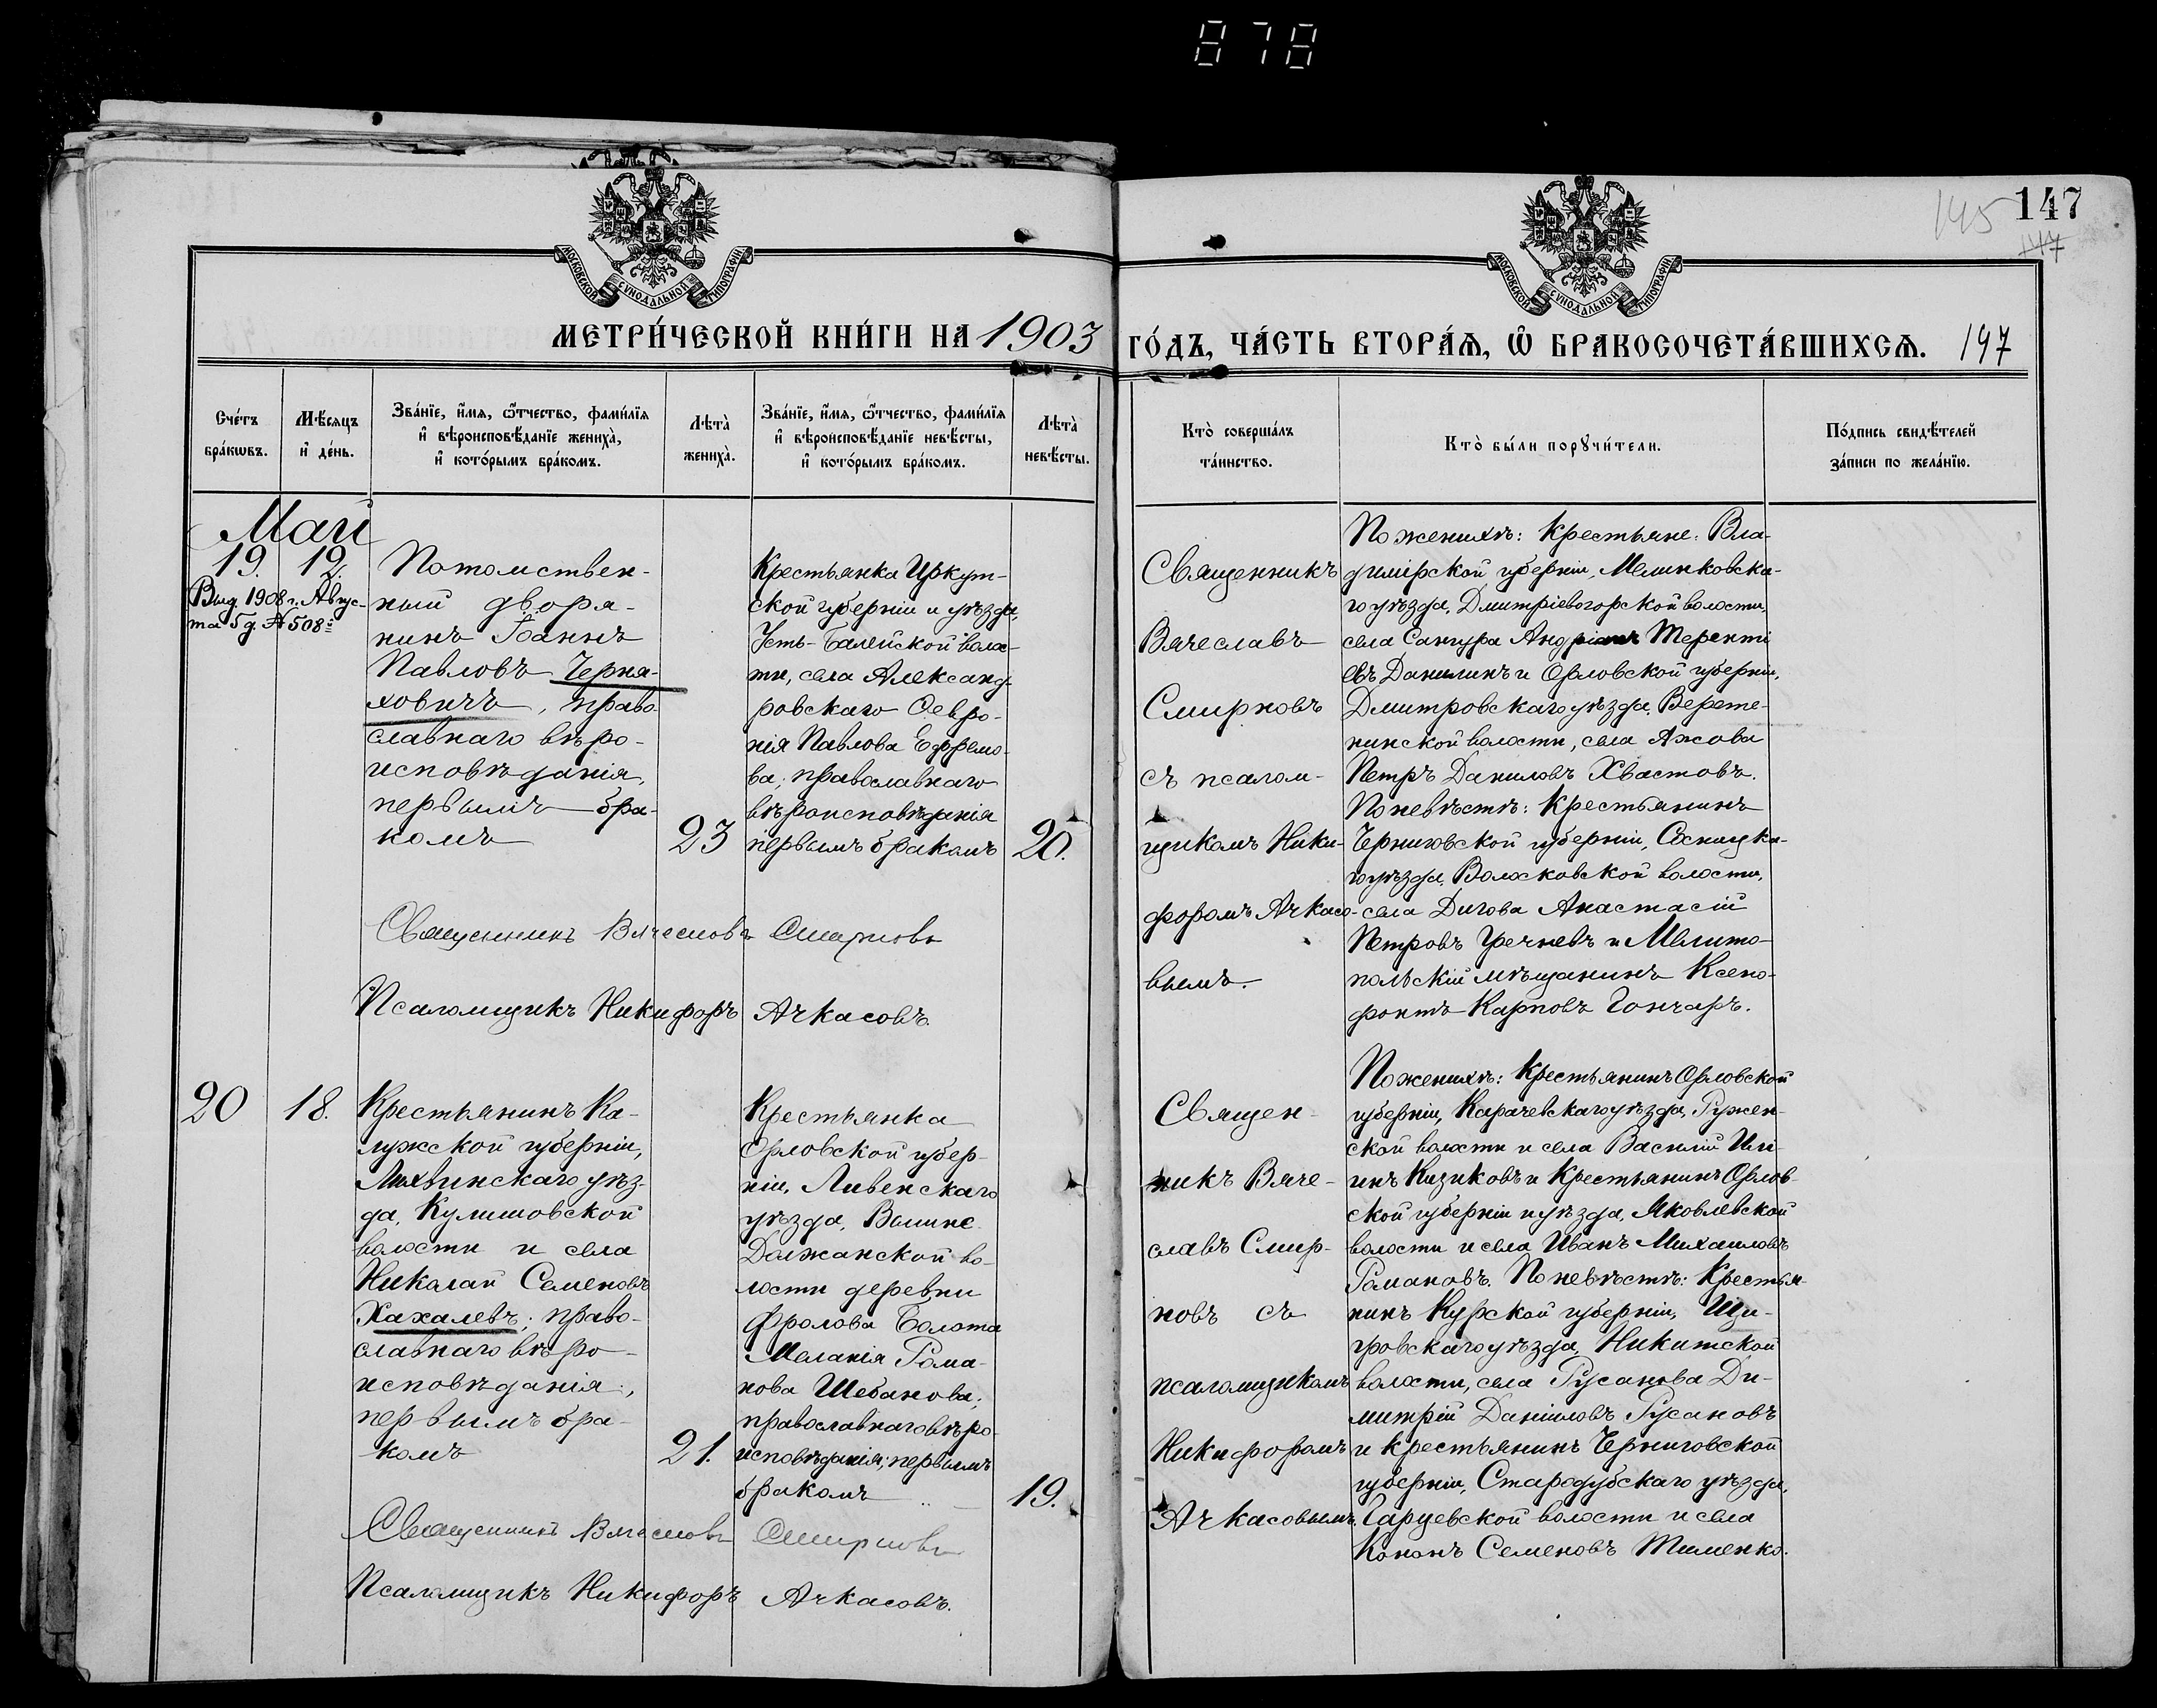 878
145
147
147
МОСКОВСКОЙ СѴНОДАЛЬНОЙ ТИПОГРАФІИ
МОСКОВСКОЙ СѴНОДАЛЬНОЙ ТИПОГРАФІИ
МЕТРИ́ЧЕСКОЙ КНИ́ГИ НА 1903
ГО́ДЪ, ЧА́СТЬ ВТОРА́Ѧ, Ѡ҆ БРАКОСОЧЕТА́ВШИХСѦ. 147
Сче́тъ
бра́кωвъ.
Мѣ́сяцъ
и҆ де́нь.
Зва́нїе, и҆́мѧ, ѻ҆́тчество, фами́лїѧ
и҆ вѣроисповѣ́данїе жениха̀,
и҆ кото́рымъ бра́комъ.
Лѣта̀
жениха̀.
Зва́нїе, и҆́мѧ, ѻ҆́тчество, фами́лїѧ
и҆ вѣроисповѣ́данїе невѣ́сты,
и҆ кото́рымъ бра́комъ.
Лѣта̀
невѣ́сты.
Кто̀ соверша́лъ
та́инство.
Кто̀ бы́ли порꙋчи́тели.
По́дпись свидѣ́телей
за́писи по жела́нїю.
Май
19.
12.
Выд. 1908 г. Авгус-
та 5 д. № 508
Потомствен-
ный дворя-
нинъ Іоаннъ
Павловъ Черня-
ховичъ, право-
славнаго вѣро-
исповѣданія,
первымъ бра-
комъ
23
Крестьянка Иркут-
ской губерніи и уѣзда,
Усть-Балейской волос-
ти, села Александ-
ровскаго Февро-
нія Павлова Ефремо-
ва, православнаго
вѣроисповѣданія
первымъ бракомъ
20.
Священникъ
Вячеславъ
Смирновъ
съ псалом-
щикомъ Ники-
форомъ Ачкасо-
вымъ.
По женихѣ: Крестьяне: Вла-
димірской губерніи, Меленковска-
го уѣзда, Дмитріевогорской волости,
села Санчура Андріанъ Терентi
евъ Данилинъ и Орловской губерніи,
Дмитровскаго уѣзда, Верете-
нинской волости, села Ажова
Петръ Даниловъ Хвастовъ.
По невѣстѣ: Крестьянинъ
Черниговской губерніи, Сосницка-
го уѣзда, Волосковской волости,
села Дигова Анастасій
Петровъ Гречневъ и Мелито-
польскій мѣщанинъ Ксено-
фонтъ Карповъ Гончаръ.
Священникъ Вячеславъ Смирновъ
Псаломщикъ Никифоръ Ачкасовъ.
20
18.
Крестьянинъ Ка-
лужской губерніи,
Лихвинскаго уѣз-
да, Кулешовской
волости и села
Николай Семеновъ
Хахалевъ; право-
славнаго вѣро-
исповѣданія,
первымъ бра-
комъ
21.
Крестьянка
Орловской губер-
ніи, Ливенскаго
уѣзда, Вышне
Должанской во-
лости деревни
Фролова Болота
Меланія Рома-
нова Шебанова;
православнаго вѣро-
исповѣданія; первымъ
бракомъ
19.
Священ-
никъ Вяче-
славъ Смир-
новъ съ
псаломщикомъ
Никифоромъ
Ачкасовымъ.
По женихѣ: Крестьянинъ Орловской
губерніи, Карачевскаго уѣзда, Ружен-
ской волости и села Василій Иль-
инъ Кизиковъ и Крестьянинъ Орлов-
ской губерніи и уѣзда, Яковлевской
волости и села Иванъ Михаиловъ
Романовъ. По невѣстѣ: Крестья-
нинъ Курской губерніи, Щи-
гровскаго уѣзда, Никитской
волости, села Русанова Ди-
митрій Даніиловъ Русановъ
и крестьянинъ Черниговской
губерніи, Стародубскаго уѣзда,
Гарцевской волости и села
Кононъ Семеновъ Тименко.
Священникъ Вячеславъ Смирновъ
Псаломщикъ Никифоръ Ачкасовъ.